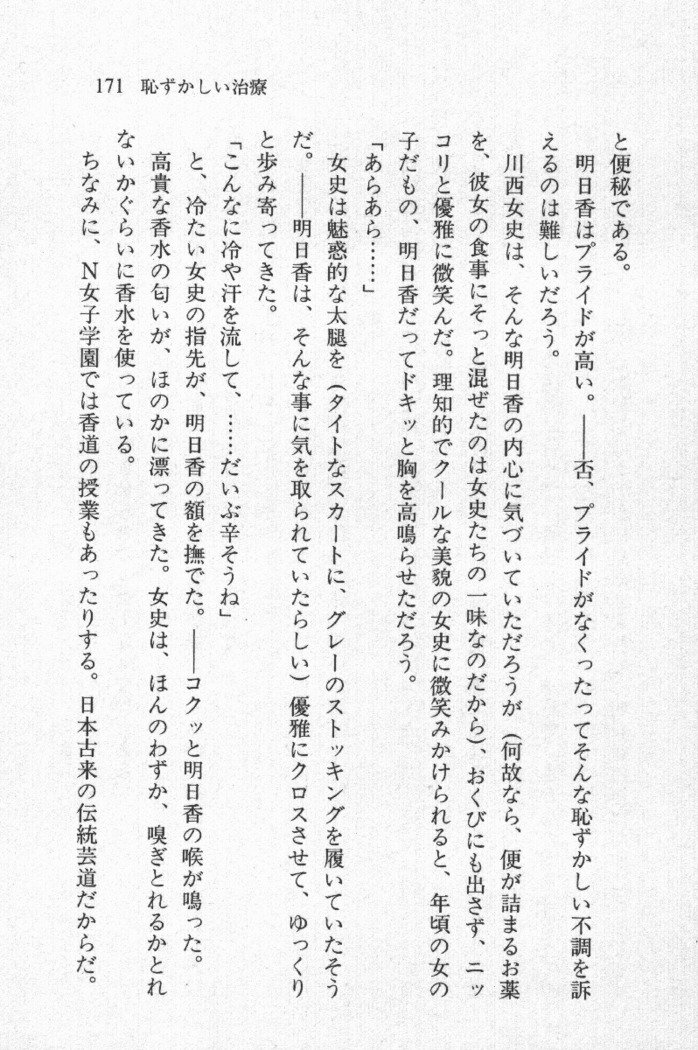 171 恥ずかしい治療
と便秘である。
明日香はプライドが高い。――否、プライドがなくったってそんな恥ずかしい不調を訴
えるのは難しいだろう。
川西女史は、そんな明日香の内心に気づいていただろうが（何故なら、便が詰まるお薬
を、彼女の食事にそっと混ぜたのは女史たちの一味なのだから）、おくびにも出さず、ニッ
コリと優雅に微笑んだ。理知的でクールな美貌の女史に微笑みかけられると、年頃の女の
子だもの、明日香だってドキッと胸を高鳴らせただろう。
「あらあら……」
女史は魅惑的な太腿を（タイトなスカートに、グレーのストッキングを履いていたそう
だ。――明日香は、そんな事に気を取られていたらしい）優雅にクロスさせて、ゆっくり
と歩み寄ってきた。
「こんなに冷や汗を流して、……だいぶ辛そうね」
と、冷たい女史の指先が、明日香の額を撫でた。――コクッと明日香の喉が鳴った。
高貴な香水の匂いが、ほのかに漂ってきた。女史は、ほんのわずか、嗅ぎとれるかとれ
ないかぐらいに香水を使っている。
ちなみに、Ｎ女子学園では香道の授業もあったりする。日本古来の伝統芸道だからだ。